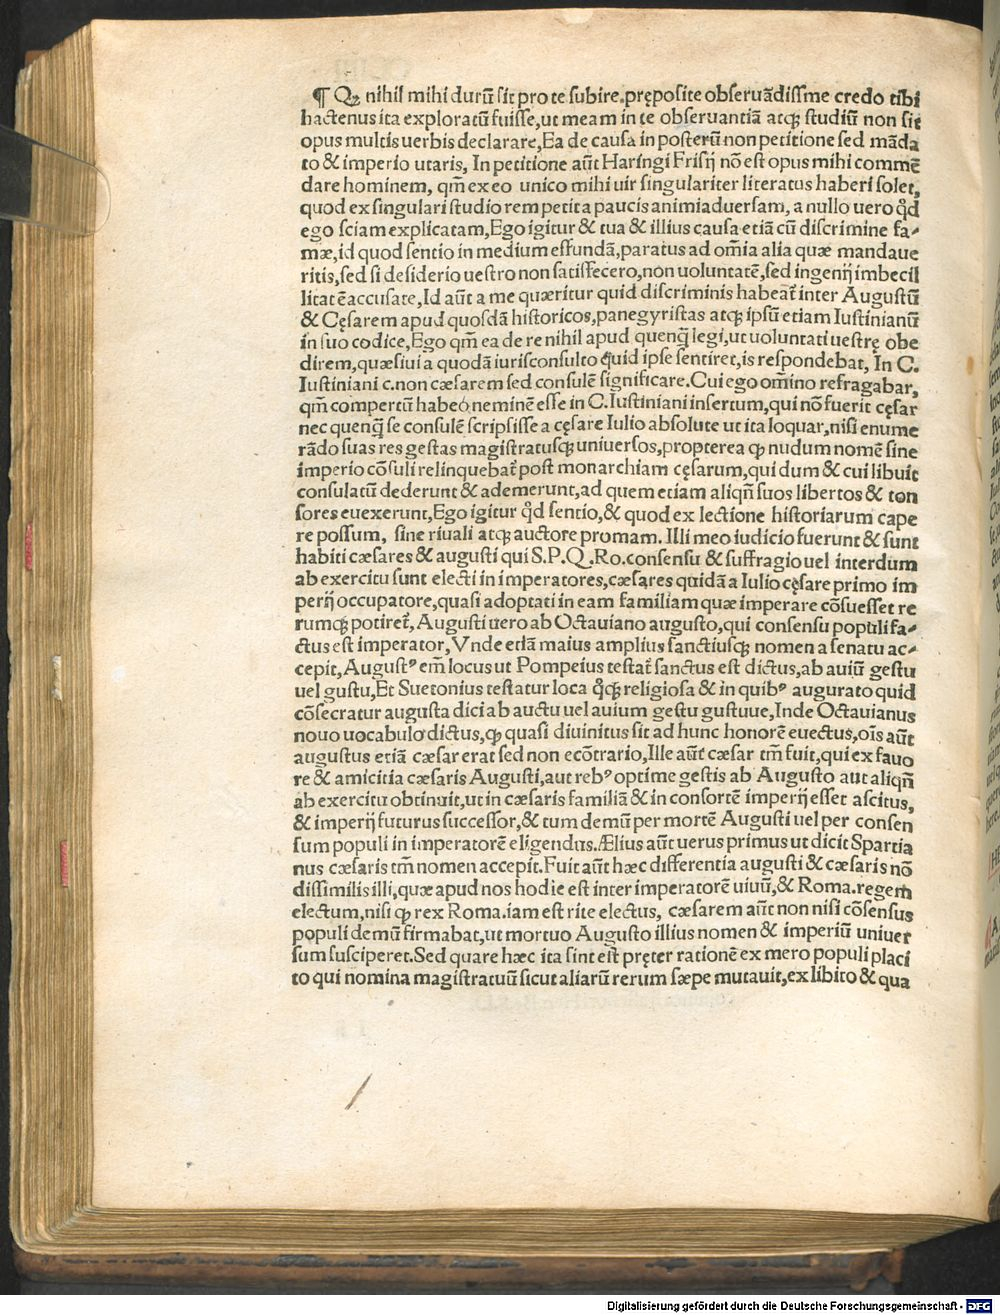 ¶ Qꝫ nihil mihi durū sit pro te subire, pręposite obseruādissme credo tibi
hactenus ita exploratū fuisse, ut meam in te obseruantiā atqꝫ studiū non sit
opus multis uerbis declarare, Ea de causa in posterū non petitione sed māda
to & imperio utaris, In petitione aūt Haringi Frisij nō est opus mihi commē
dare hominem, qm̄ ex eo unico mihi uir singulariter literatus haberi solet,
quod ex singulari studio rem petit a paucis animiaduersam, a nullo uero q̊d
ego sciam explicatam, Ego igitur & tua & illius causa etiā cū discrimine fa⸗
mæ, id quod sentio in medium effundā, paratus ad om̄ia alia quæ mandaue
ritis, sed si desiderio uestro non satisfecero, non uoluntatē, sed ingenij imbecil
litatē accusate, Id aūt a me quæritur quid discriminis habeat᷑ inter Augustū
& Cęsarem apud quosdā historicos, panegyristas atqꝫ ipsū etiam Iustinianū
in suo codice, Ego qm̄ ea de re nihil apud quenq̄ legi, ut uoluntati uestrę obe
direm, quæsiui a quodā iurisconsulto quid ipse sentiret, is respondebat, In C.
Iustiniani c. non cæsarem sed consulē significare. Cui ego om̄ino refragabar,
qm̄ compertū habeo neminē esse in C. Iustiniani insertum, qui nō fuerit cęsar
nec quenq̄ se consulē scripsisse a cęsare Iulio absolute ut ita loquar, nisi enume
rādo suas res gestas magistratusqꝫ uniuersos, propterea ꝙ nudum nomē sine
imperio cōsuli relinquebat᷑ post monarchiam cęsarum, qui dum & cui libuit
consulatū dederunt & ademerunt, ad quem etiam aliqn̄ suos libertos & ton
sores euexerunt, Ego igitur q̊d sentio, & quod ex lectione historiarum cape
re possum, sine riuali atqꝫ auctore promam. Illi meo iudicio fuerunt & sunt
habiti cæsares & augusti qui S.P.Q.Ro. consensu & suffragio uel interdum
ab exercitu sunt electi in imperatores, cæsares quidā a Iulio cęsare primo im
perij occupatore, quasi adoptati in eam familiam quæ imperare cōsuesset re
rumqꝫ potiret᷑, Augusti uero ab Octauiano augusto, qui consensu populi fa⸗
ctus est imperator, Vnde etiā maius amplius sanctiusqꝫ nomen a senatu ac⸗
cepit, Augustꝰ em̄ locus ut Pompeius testat᷑ sanctus est dictus, ab auiū gestu
uel gustu, Et Suetonius testatur loca q̊qꝫ religiosa & in quibꝰ augurato quid
cōsecratur augusta dici ab auctu uel auium gestu gustuue, Inde Octauianus
nouo uocabulo dictus, ꝙ quasi diuinitus sit ad hunc honorē euectus, oīs aūt
augustus etiā cæsar erat sed non ecōtrario, Ille aūt cæsar tm̄ fuit, qui ex fauo
re & amicitia cæsaris Augusti, aut rebꝰ optime gestis ab Augusto aut aliqn̄
ab exercitu obtinuit, ut in cæsaris familiā & in consortē imperij esset ascitus,
& imperij futurus successor, & tum demū per mortē Augusti uel per consen
sum populi in imperatorē eligendus. Ælius aūt uerus primus ut dicit Spartia
nus cæsaris tm̄ nomen accepit. Fuit aūt hæc differentia augusti & cæsaris nō
dissimilis illi, quæ apud nos hodie est inter imperatorē uiuū, & Roma. regem
electum, nisi ꝙ rex Roma. iam est rite electus, cæsarem aūt non nisi cōsensus
populi demū firmabat, ut mortuo Augusto illius nomen & imperiū uniuer
sum susciperet. Sed quare hæc ita sint est pręter rationē ex mero populi placi
to qui nomina magistratuū sicut aliarū rerum sæpe mutauit, ex libito & qua
Digitalisierung gefördert durch die Deutsche Forschungsgemeinschaft - DFG